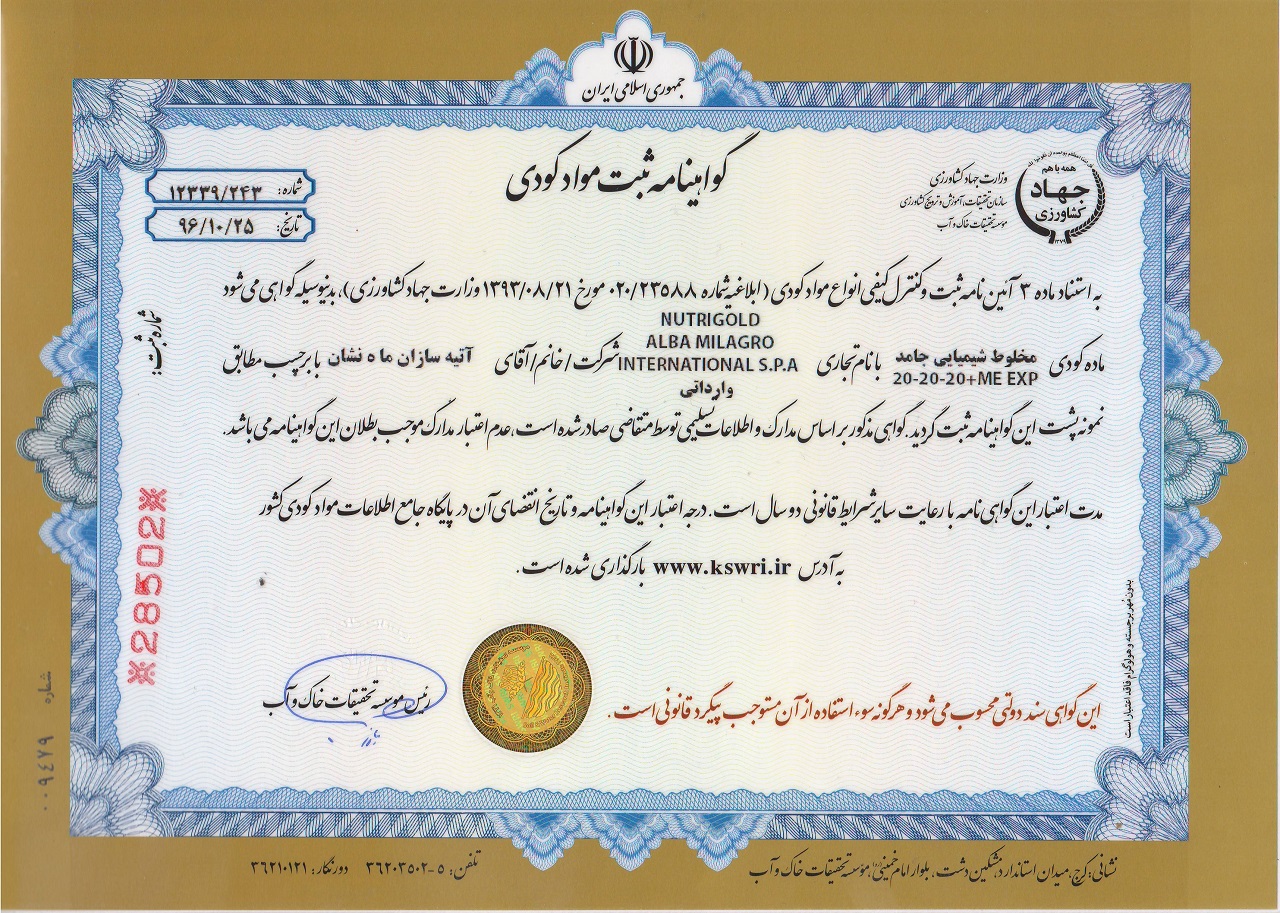 جمهوری اسلامی ایران
گواهینامه ثبت مواد کودی
همه با هم
جهاد
کشاورزی
۱۳۷۹
وزارت جهاد کشاورزی
سازمان تحقیقات، آموزش و ترویج کشاورزی
موسسه تحقیقات خاک و آب
شماره: ۱۲۳۳۹/۲۴۳
تاریخ: ۹۶/۱۰/۲۵
به استناد ماده ۳ آئین نامه ثبت و کنترل کیفی انواع مواد کودی (ابلاغیه شماره ۰۲۰/۲۳۵۸۸ مورخ ۱۳۹۳/۰۸/۲۱ وزارت جهاد کشاورزی)، بدینوسیله گواهی می شود
ماده کودی مخلوط شیمیایی جامد 20-20-20+ME EXP با نام تجاری NUTRIGOLD ALBA MILAGRO INTERNATIONAL S.P.A وارداتی شرکت / خانم / آقای آتیه سازان ماه نشان با برچسب مطابق
نمونه پشت این گواهینامه ثبت گردید. گواهی مذکور بر اساس مدارک و اطلاعات تسلیمی توسط متقاضی صادر شده است، عدم اعتبار مدارک موجب بطلان این گواهینامه می باشد.
مدت اعتبار این گواهی نامه با رعایت سایر شرایط قانونی دو سال است. درجه اعتبار این گواهینامه و تاریخ انقضای آن در پایگاه جامع اطلاعات مواد کودی کشور
به آدرس www.kswri.ir بارگذاری شده است.
شماره ثبت:
※28502※
بدون مهر برجسته و هولوگرام فاقد اعتبار است
این گواهی سند دولتی محسوب می شود و هرگونه سوء استفاده از آن مستوجب پیگرد قانونی است.
رئیس موسسه تحقیقات خاک و آب
شماره ۰۰۹٤٧٩
نشانی: کرج، میدان استاندارد، مشکین دشت، بلوار امام خمینی(ره)، موسسه تحقیقات خاک و آب
تلفن: ۵-۳۶۲۰۳۵۰۲ دورنگار: ۳۶۲۱۰۱۲۱